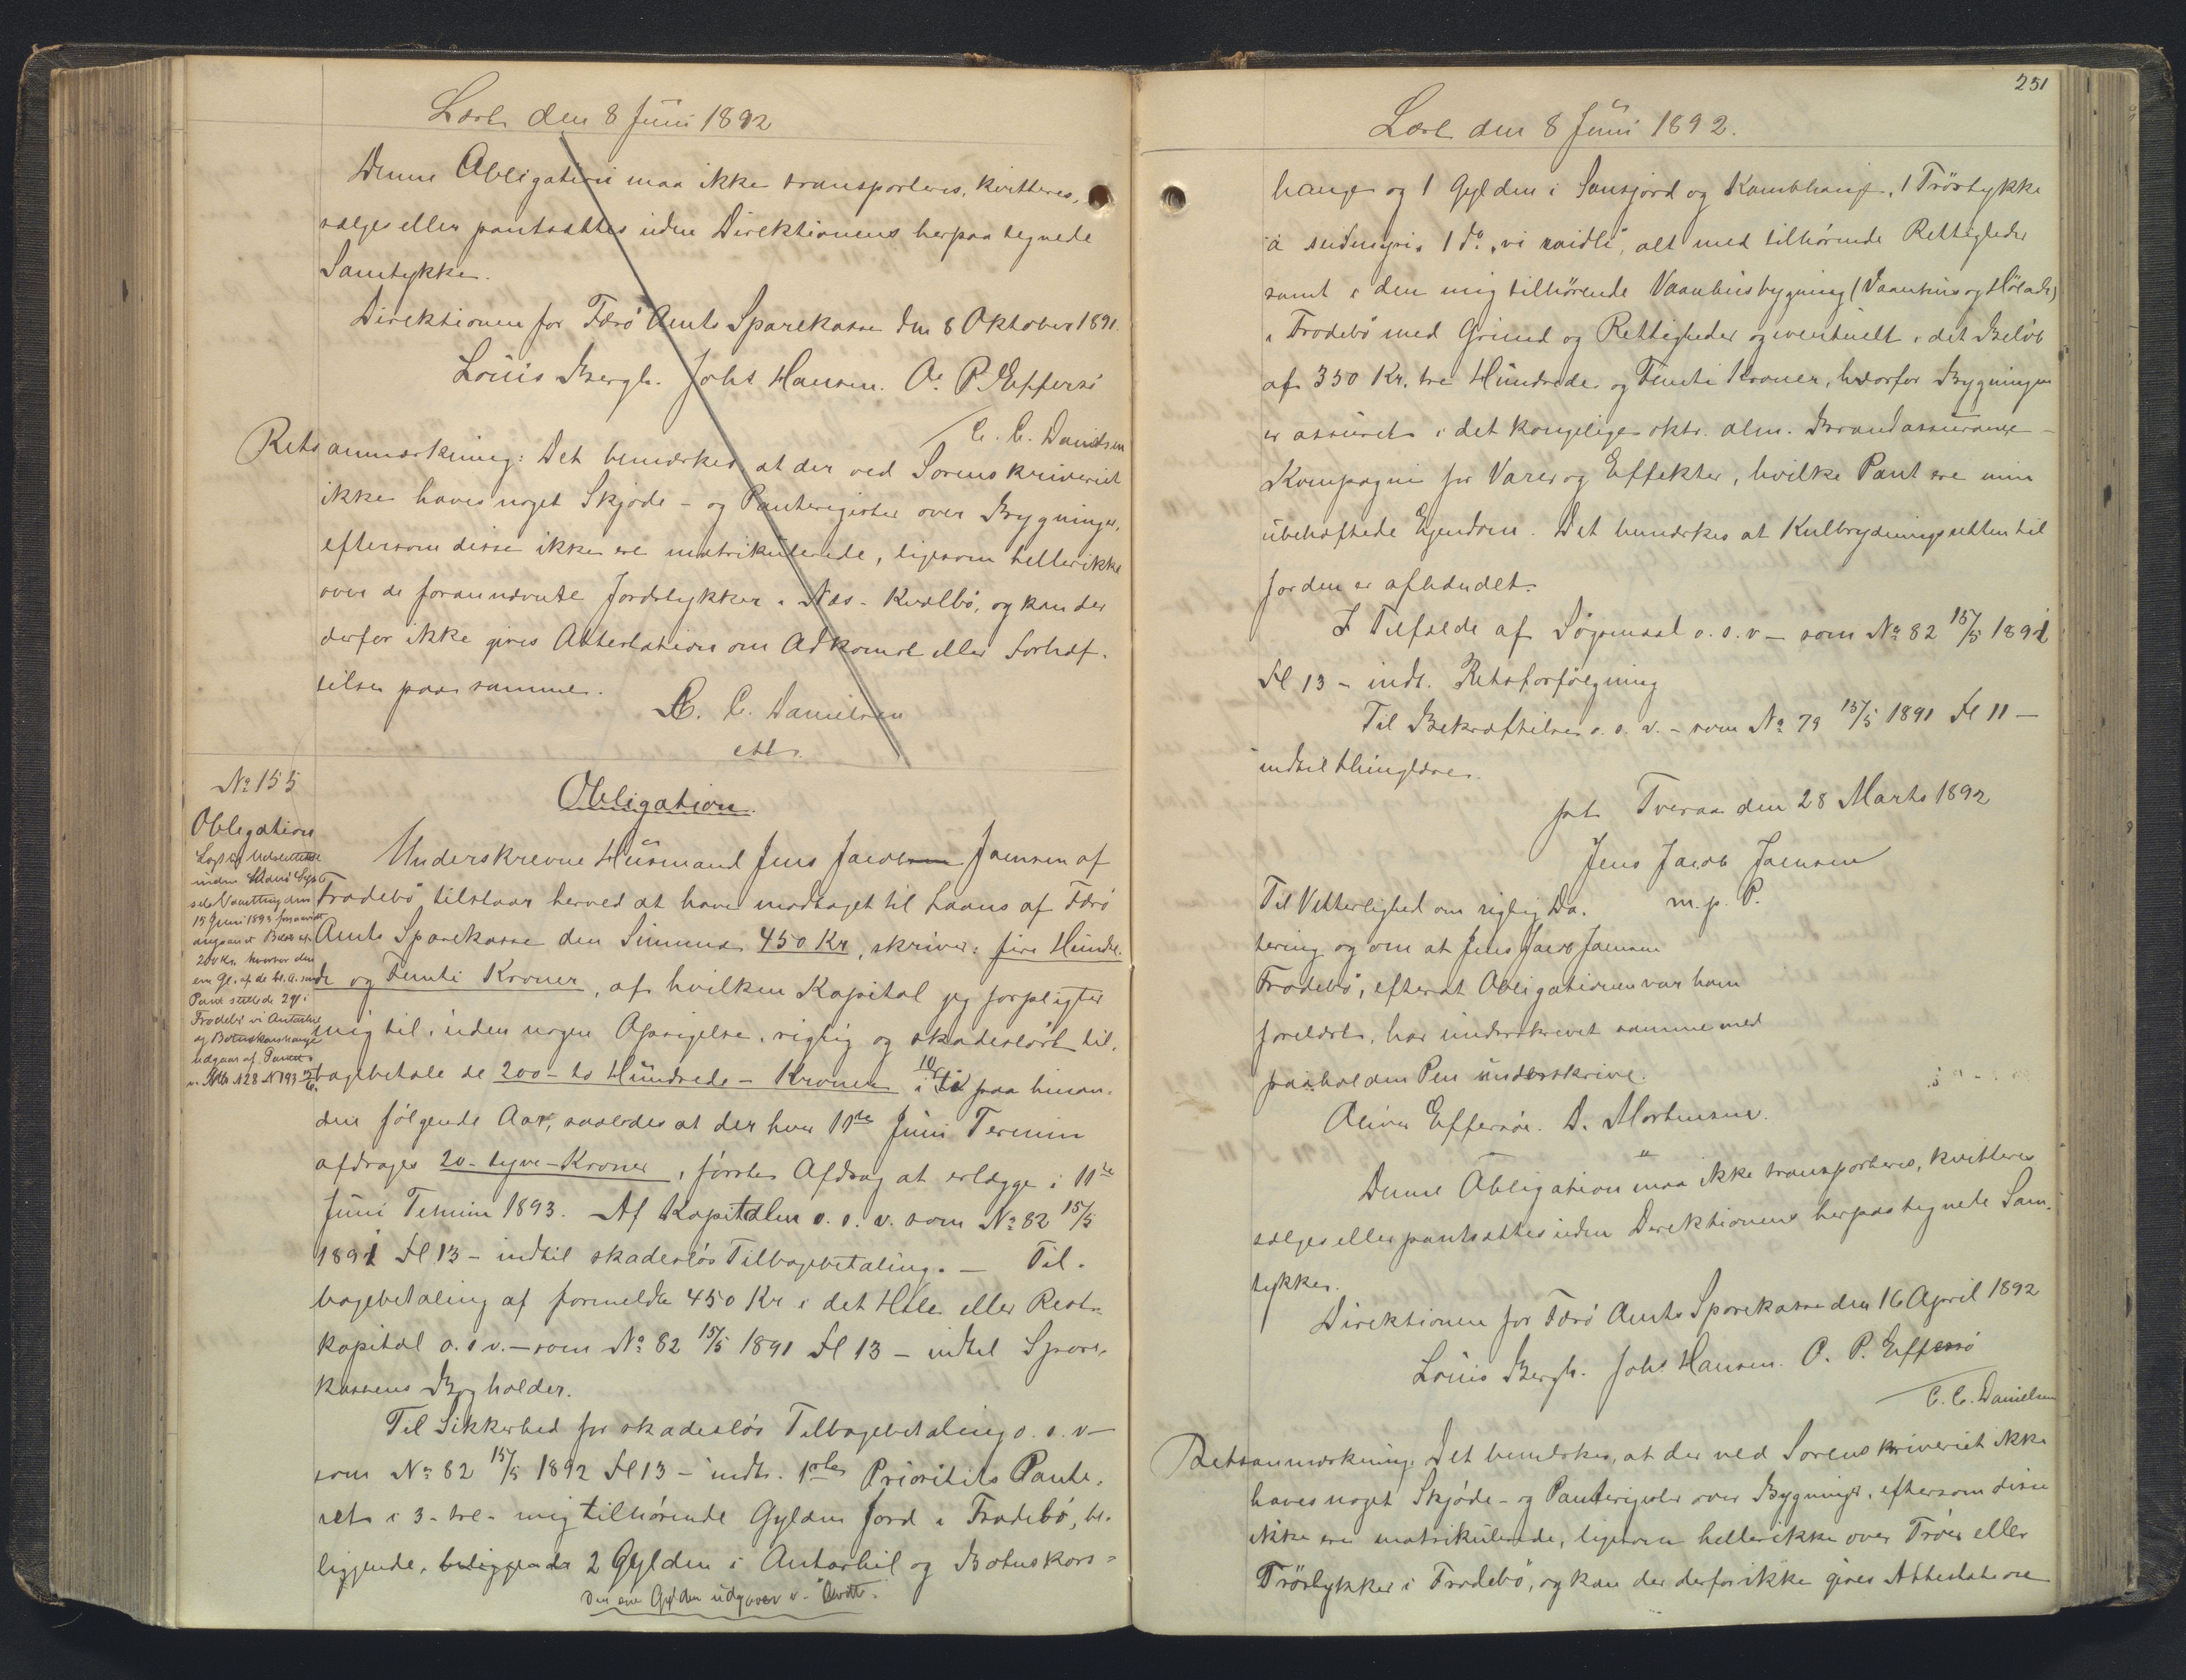 Læst den 8 Juni 1892
Denne Obligation maa ikke transporteres, kvitteres,
sælges eller pantsættes uden Direktionens herpaa tegnede
Samtykke.
Direktionen for Færø Amts Sparekasse den 8 Oktober 1891.
Louis Bergh. Johs Hansen. O. P. Effersö
C. C. Danielsen
Retsanmærkning: Det bemærkes at der ved Sorenskriveriet
ikke haves noget Skjøde- og Panteregister over Bygninger,
eftersom disse ikke ere matrikulerede, ligesom heller ikke
over de forannævnte Jordstykker i Næs-Kvalbö, og kan der
derfor ikke gives Attestation om Adkomst eller Forhæf-
telser paa samme.
C. C. Danielsen
cst.
№ 155
Obligation
15 Juni 1893
200 Kr. hvorfor den
Obligation.
Underskrevne Husmand Jens Jacob Joensen af
Frodebö tilstaar herved at have modtaget til Laans af Færö
Amts Sparekasse den Summa 450 Kr, skriver: fire Hundre-
de og Femti Kroner, af hvilken Kapital jeg forpligter
mig til, uden nogen Opsigelse, rigtig og skadeslöst til-
bagebetale de 200 - to Hundrede - Kroner i 10 ti paa hinan-
den fölgende Aar, saaledes at der hver 11te Juni Termin
afdrages 20 - tyve - Kroner, förste Afdrag at erlægge i 11te
Juni Termin 1893. Af Kapitalen o. s. v. som № 82 15/5
1891 Fl 13 - indtil skadeslös Tilbagebetaling. - Til-
bagebetaling af formeldte 450 Kr i det Hele eller Rest-
kapital o. s v. - som № 82 15/5 1891 Fl 13 - indtil Spare-
kassens Bogholder.
Til Sikkerhed for skadeslös Tilbagebetaling o. s. v -
som № 82 15/5 1892 Fl 13 - indt. 1ste Prioritets Pante-
ret i 3 - tre - mig tilhörende Gylden Jord i Frodebö, be-
liggende, beliggende 2 Gylden i Antarhil og Botnskors-
Den ene Gylden udgaaer v.
251
Læst den 8 Juni 1892.
hauge og 1 Gylden i Sansjord og Kambhauge, 1 Tröstykke
1 do. "vi raidli", alt med tilhörende Rettigheder
samt i den mig tilhörende Vaanhusbygning (Vaanhus og Hölade)
i Frodebö med Grund og Rettigheder og eventuelt i det Belöb
af 350 Kr. tre Hundrede og Femti Kroner, hvorfor Bygningen
er assureret i det kongelige oktr. alm. Brandassurance-
Kompagni for Varer og Effekter, hvilke Pant ere min
ubehæftede Ejendom. Det bemærkes at Kulbrydningsretten til
Jorden er afhændet.
I Tilfælde af Sögsmaal o. s. v - som № 82 15/5 1891
Fl 13 - indt. Retsforfölgning
Til Bekræftelse o. s. v. - som № 79 15/5 1891 Fl 11 -
indtil thinglæse.
pt Tveraa den 28 Marts 1892
Jens Jacob Joensen
m. p. P.
Til Vitterlighed om rigtig Da-
tering og om at Jens Jacob Joensen
Frodebö, efter at Obligationen var ham
forelæst, har underskrevet samme med
paaholden Pen underskrive.
Oliver Effersöe. D. Mortensen.
Denne Obligation maa ikke transporteres, kvitteres
sælges eller pantsættes uden Direktionens herpaa tegnede Sam-
tykke.
Direktionen for Færö Amts Sparekasse den 16 April 1892
Louis Bergh. Johs Hansen. O. P. Effersö
C. C. Danielsen
Retsanmærkning: Det bemærkes, at der ved Sorenskriveriet ikke
haves noget Skjöde- og Panteregister over Bygninger, eftersom disse
ikke ere matrikulerede, ligesom heller ikke over Tröer eller
Tröstykker i Frodebö, og kan der derfor ikke gives Attestation